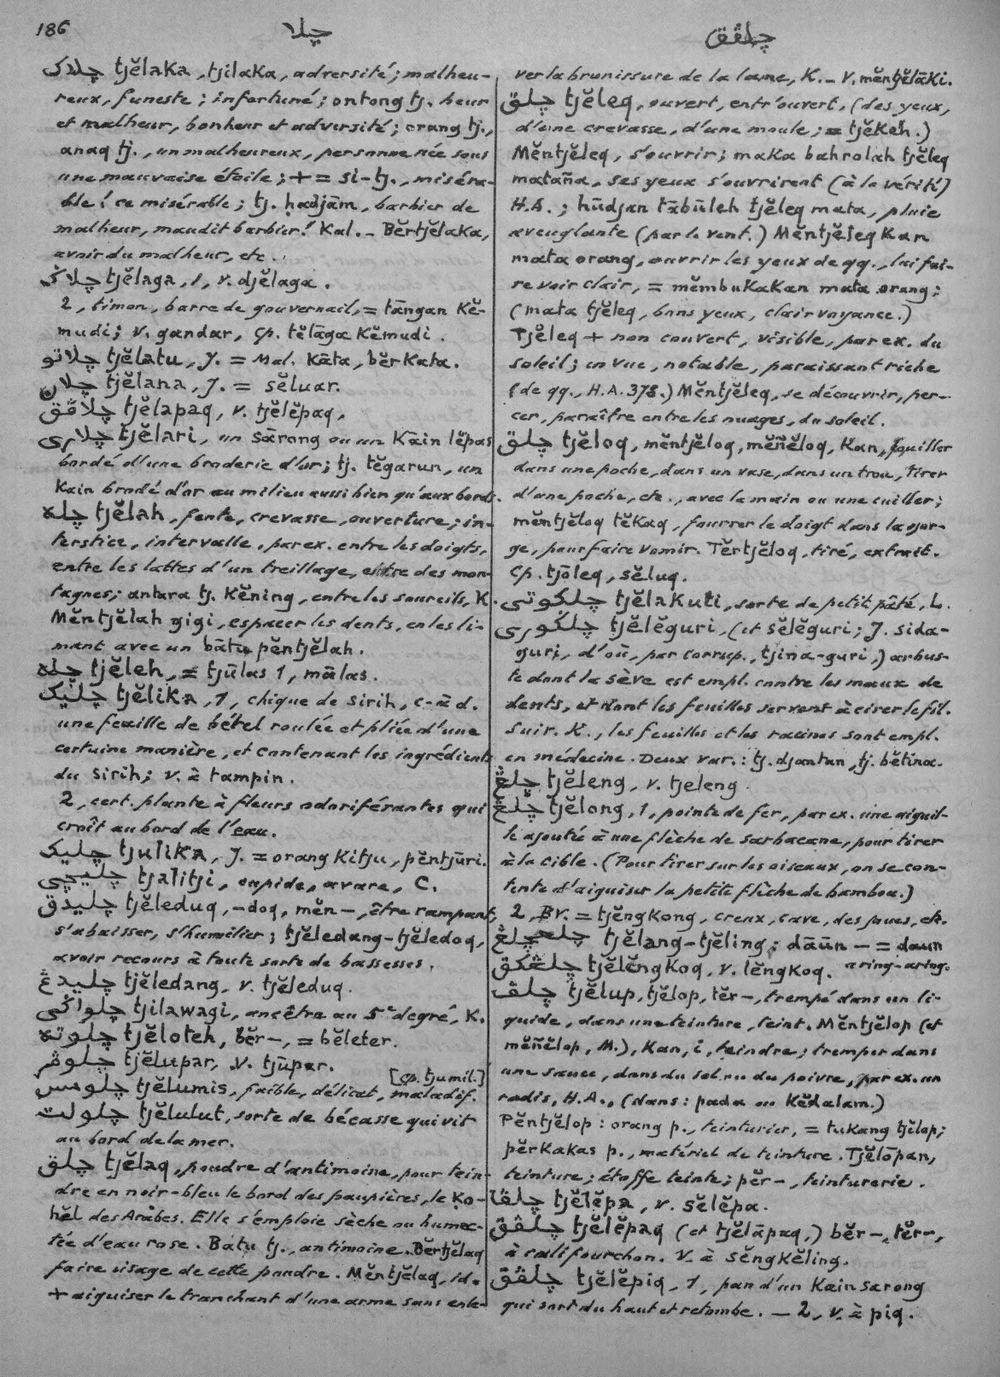 186
چلا
چلڤق
چلاک tjĕlaka, tjilaka, adversité; malheu-
reux, funeste; infortuné; ontong tj. heur
et malheur, bonheur et adversité; orang tj.,
anaq tj., un malheureux, personne née sous
une mauvaise étoile; += si-tj., miséra-
ble! ce misérable; tj. ḥadjām, barbier de
malheur, maudit barbier! Kal. - Bĕrtjĕlaka,
avoir du malheur, etc.
چلاݢ tjĕlaga, 1, v. djĕlaga.
2, timon, barre de gouvernail, = tāngan Kĕ-
mudi; v. gandar, cp. tĕlāga Kĕmudi.
چلاتو tjĕlatu, J. = Mal. Kāta, bĕrkata.
چلان tjĕlana, J. = sĕluar.
چلاڤق tjĕlapaq, v. tjĕlĕpaq.
چلاري tjĕlari, un sārong ou un Kāin lĕpas
bordé d'une broderie d'or; tj. tĕgarun, un
Kain brodé d'or au milieu aussi bien qu'aux bords.
چله tjĕlah, fente, crevasse, ouverture; in-
terstice, intervalle, par ex. entre les doigts,
entre les lattes d'un treillage, entre des mon-
tagnes; antara tj. Kĕning, entre les sourcils, K.
Mĕntjĕlah gigi, espacer les dents, en les li-
mant avec un bātu pĕntjĕlah.
چله tjĕleh, = tjūlas 1, mālas.
چليک tjĕlika, 1, chique de sirih, c-à d.
une feuille de bétel roulée et pliée d'une
certaine manière, et contenant les ingrédients
du sirih; v. à tampin.
2, cert. plante à fleurs odoriférantes qui
croît au bord de l'eau.
چليک tjulika, J. = orang Kitju, pĕntjūri.
چليچي tjalitji, cupide, avare, C.
چليدق tjĕleduq, -doq, mĕn-, être rampant,
s'abaisser, s'humilier; tjĕledang-tjĕledoq,
avoir recours à toute sorte de bassesses.
چليدڠ tjĕledang, v. tjĕleduq.
چلواݢي tjilawagi, ancêtre au 5e degré, K.
چلوته tjĕloteh, bĕr-, = bĕleter.
چلوڤر tjĕlupar, v. tjūpar.
[cp. tjumil.]
چلومس tjĕlumis, faible, délicat, maladif.
چلولت tjĕlulut, sorte de bécasse qui vit
au bord de la mer.
چلق tjĕlaq, poudre d'antimoine, pour tein-
dre en noir-bleu le bord des paupières, le Ko-
hĕl des Arabes. Elle s'emploie sèche ou humec-
tée d'eau rose. Batu tj., antimoine. Bĕrtjĕlaq
faire usage de cette poudre. Mĕntjĕlaq, id.
+ aiguiser le tranchant d'une arme sans enle-
ver la brunissure de la lame, K. - V. mĕntjĕlāki.
چلق tjĕleq, ouvert, entr'ouvert, (des yeux,
d'une crevasse, d'une moule; = tjĕkeh.)
Mĕntjĕleq, s'ouvrir; maka bahrolah tjĕleq
matan̄a, ses yeux s'ouvrirent (à la vérité)
H.A.; hūdjan tābūleh tjĕleq mata, pluie
aveuglante (par le vent.) Mĕntjĕleqkan
mata orang, ouvrir les yeux de qq., lui fai-
re voir clair, = mĕmbukakan mata orang;
(mata tjĕleq, bons yeux, clairvoyance.)
Tjĕleq + non couvert, visible, par ex. du
soleil; en vue, notable, paraissant riche
(de qq., H.A. 378.) Mĕntjĕleq, se découvrir, per-
cer, paraître entre les nuages, du soleil.
چلق tjĕloq, mĕntjĕloq, mĕn̄ĕloq, Kan, fouiller
dans une poche, dans un vase, dans un trou, tirer
d'une poche, etc., avec la main ou une cuiller;
mĕntjĕloq tĕkaq, fourrer le doigt dans la gor-
ge, pour faire vomir. Tĕrtjĕloq, tiré, extrait.
Cp. tjōleq, sĕluq.
چلکوتي tjĕlakuti, sorte de petit pâté, L.
چلݢوري tjĕlĕguri, (et sĕlĕguri; J. sida-
guri, d'où, par corrup., tjina-guri,) arbus-
te dont la sève est empl. contre les maux de
dents, et dont les feuilles servent à cirer le fil.
Suiv. K., les feuilles et les racines sont empl.
en médecine. Deux var.: tj. djantan, tj. bĕtina.
چلڠ tjĕleng, v. tjeleng.
چلڠ tjĕlong, 1, pointe de fer, par ex. une aiguil-
le ajoutée à une flèche de sarbacane, pour tirer
à la cible. (Pour tirer sur les oiseaux, on se con-
tente d'aiguiser la petite flèche de bambou.)
2, Br. = tjĕngkong, creux, cave, des joues, etc.
چلڠچلڠ tjĕlang-tjĕling; dāūn - = daun
aring-aring.
چلڠکق tjĕlĕngkoq, v. lĕngkoq.
چلڤ tjĕlup, tjĕlop, tĕr-, trempé dans un li-
quide, dans une teinture, teint. Mĕntjĕlop (et
mĕn̄ĕlop, M.), Kan, i, teindre; tremper dans
une sauce, dans du sel ou du poivre, par ex. un
radis, H.A., (dans: pada ou Kĕdalam.)
Pĕntjĕlop: orang p., teinturier, = tukang tjĕlop;
pĕrkakas p., matériel de teinture. Tjĕlōpan,
teinture; étoffe teinte; pĕr-, teinturerie.
چلڤا tjĕlĕpa, v. sĕlĕpa.
چلڤق tjĕlĕpaq (et tjĕlāpaq,) bĕr-, tĕr-,
à califourchon. V. à sĕngkĕling.
چلڤق tjĕlĕpiq, 1, pan d'un Kain sarong
qui sort du haut et retombe. - 2, v. à piq.